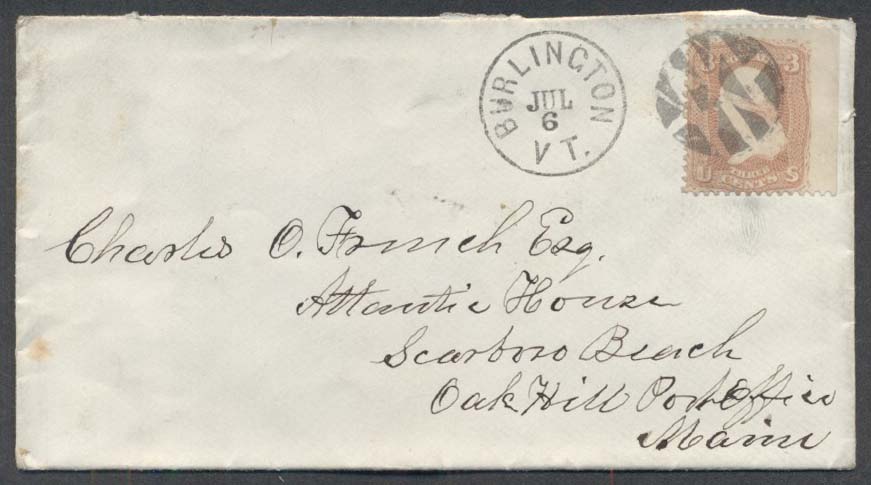 BURLINGTON
JUL
6
VT.
U 3
THREE
U CENTS S
Charles O. French Esq.
Atlantic House
Scarboro Beach
Oak Hill Post Office
Maine